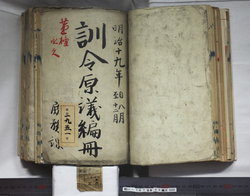 明治十九年 自八月 至十二月
訓令原議編冊
庶務課
永久
二九五一